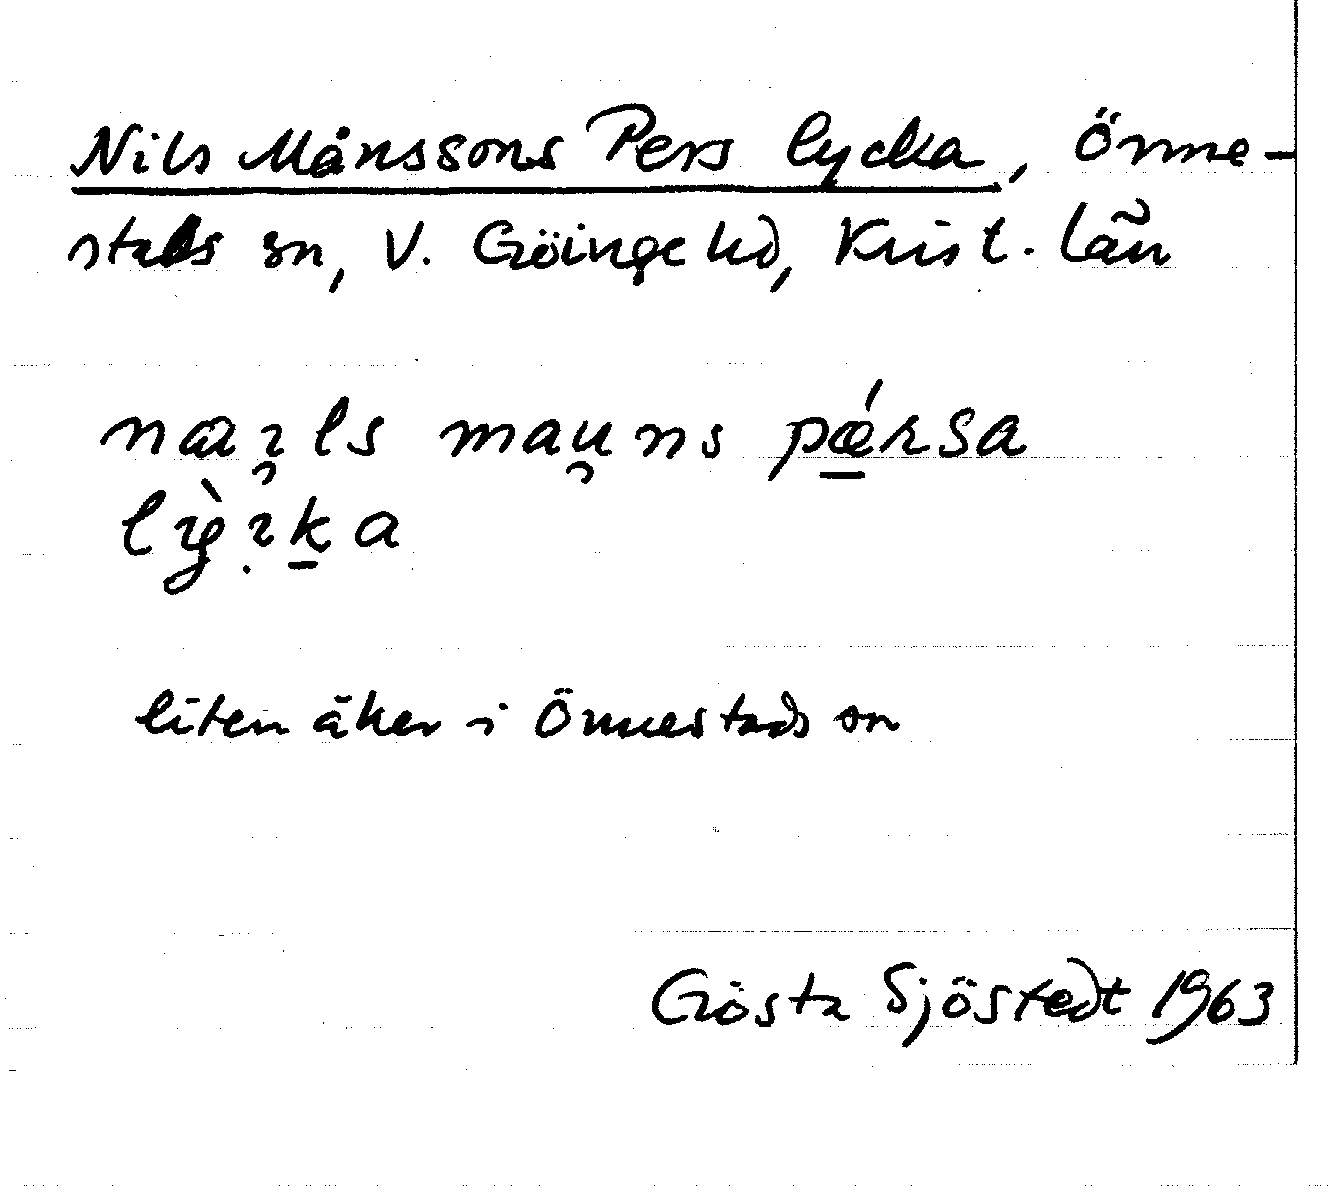 Nils Månssons Pers lycka, Önne-
stads sn, V. Göinge hd, Krist. län
liten åker i Önnestads sn
Gösta Sjöstedt 1963